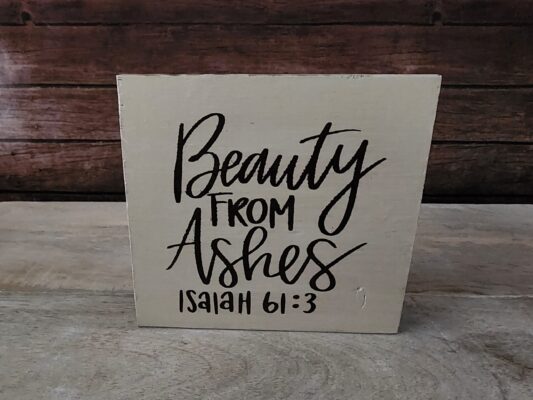 Beauty
FROM
Ashes
ISaIaH 61:3